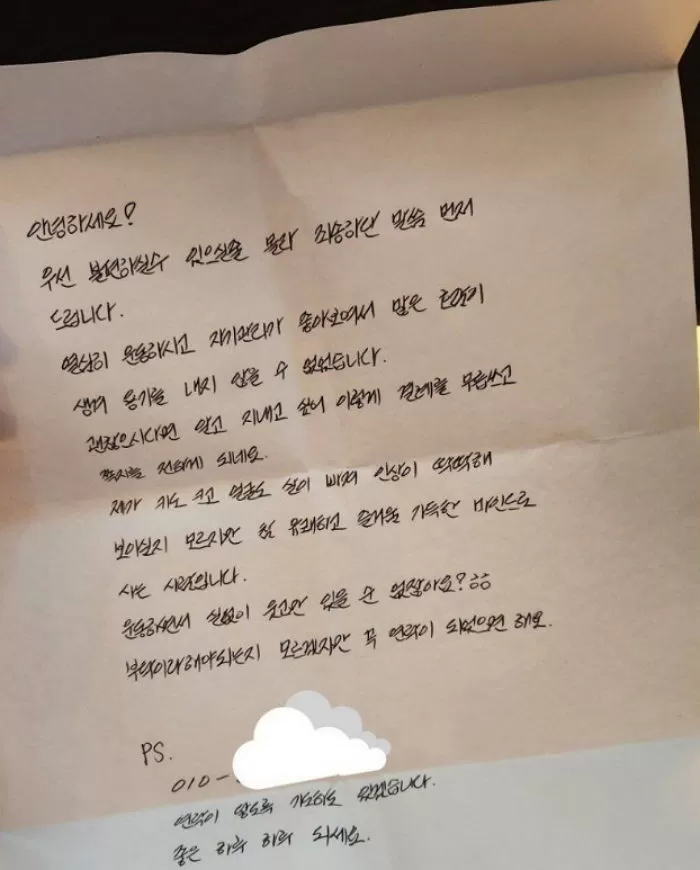 안녕하세요?
우선 불편하실수 있으실줄 몰라 죄송하단 말씀 먼저
드립니다.
열심히 운동하시고 자기관리가 좋아보여서 많은 호감이
생겨 용기를 내지 않을 수 없었습니다.
괜찮으시다면 알고 지내고 싶어 이렇게 결례를 무릅쓰고
쪽지를 전하게 되네요.
제가 키도 크고 얼굴도 살이 빠져 인상이 딱딱해
보이실지 모르지만 참 유쾌하고 즐거움 가득한 마인드로
사는 사람입니다.
운동하면서 실없이 웃고만 있을 순 없잖아요?
부탁이라해야되는지 모르겠지만 꼭 연락이 되었으면 해요.
PS.
010-
연락이 않도록 기도하고 있겠습니다.
좋은 하루 하루 되세요.